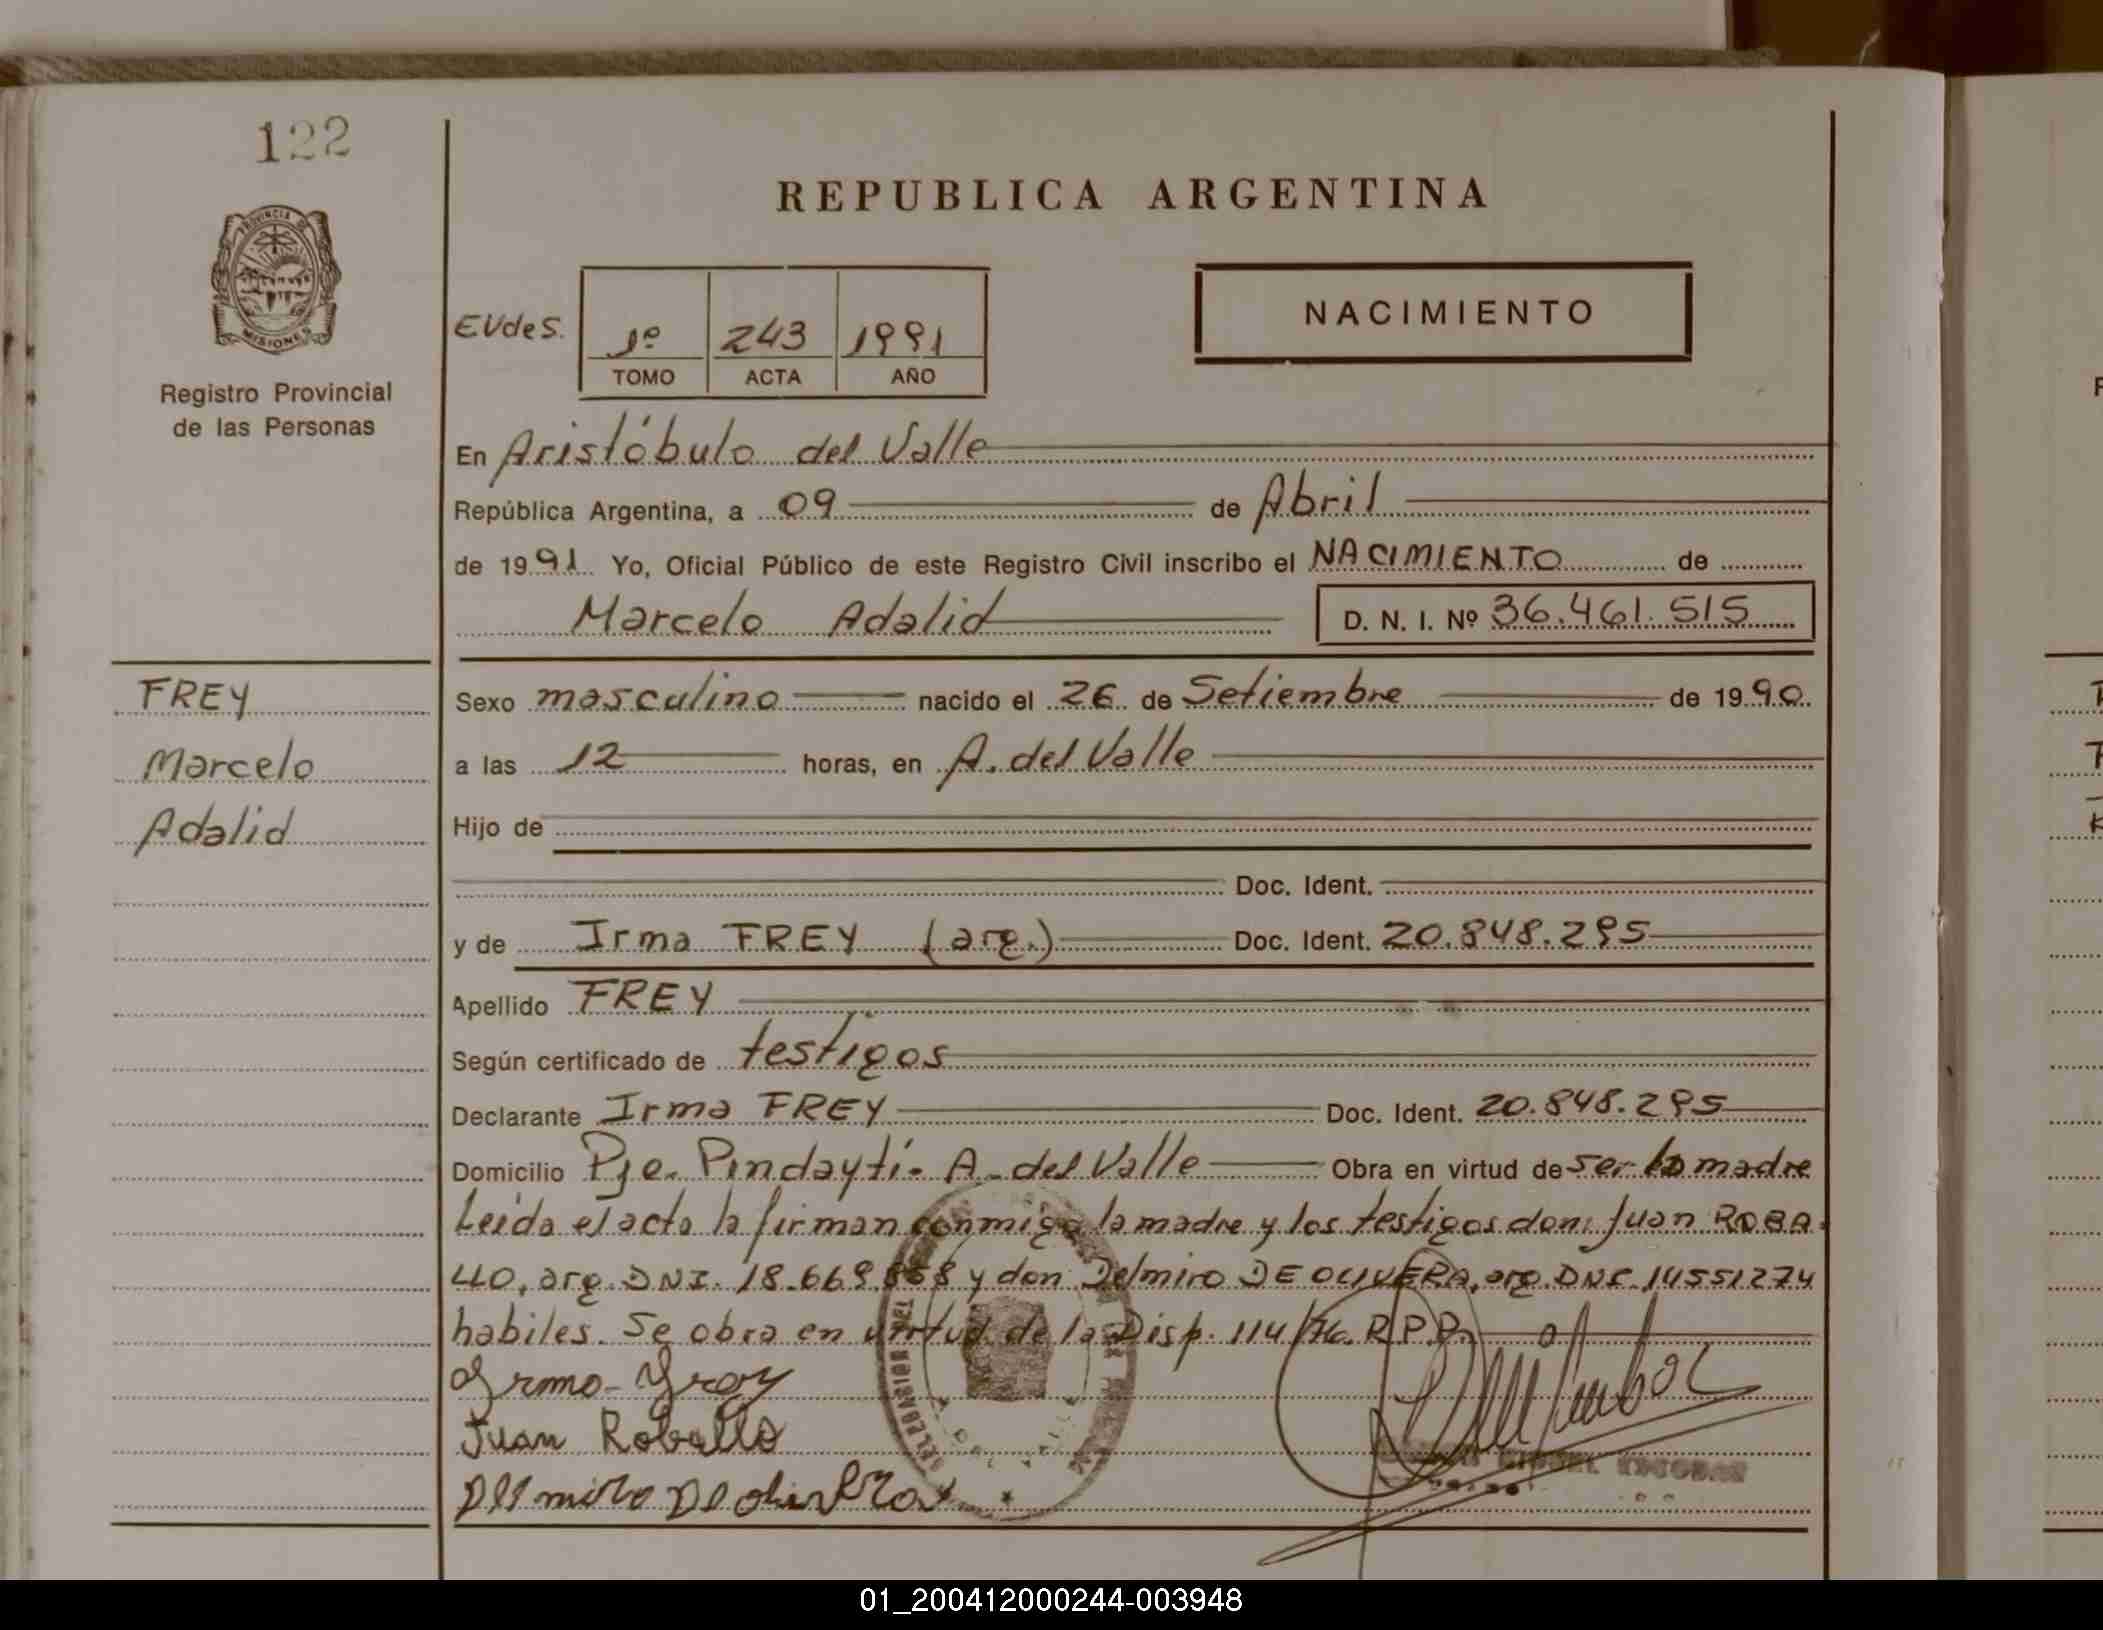 122
REPUBLICA ARGENTINA
PROVINCIA DE
MISIONES
Registro Provincial
de las Personas
EVdes.
1º 243 1991
TOMO ACTA AÑO
NACIMIENTO
En Aristóbulo del Valle
República Argentina, a 09 de Abril
de 1991 Yo, Oficial Público de este Registro Civil inscribo el NACIMIENTO de
Marcelo Adalid D. N. I. Nº 36.461.515
FREY
Marcelo
Adalid
Sexo masculino nacido el 26 de Setiembre de 1990
a las 12 horas, en A. del Valle
Hijo de
Doc. Ident.
y de Irma FREY (arg.) Doc. Ident. 20.848.295
Apellido FREY
Según certificado de testigos
Declarante Irma FREY Doc. Ident. 20.848.295
Domicilio Pje. Pindaytí- A. del Valle Obra en virtud de ser la madre
Leída el acta la firman conmigo la madre y los testigos don: Juan ROBA-
LLO, arg. DNI. 18.669.868 y don Delmiro DE OLIVERA, arg. DNI. 14551274
habiles. Se obra en virtud de la Disp. 114/76. R.P.P.
Irma Frey
Juan Roballo
Delmiro De oliveira
MIGUEL ESCOBAR
01_200412000244-003948